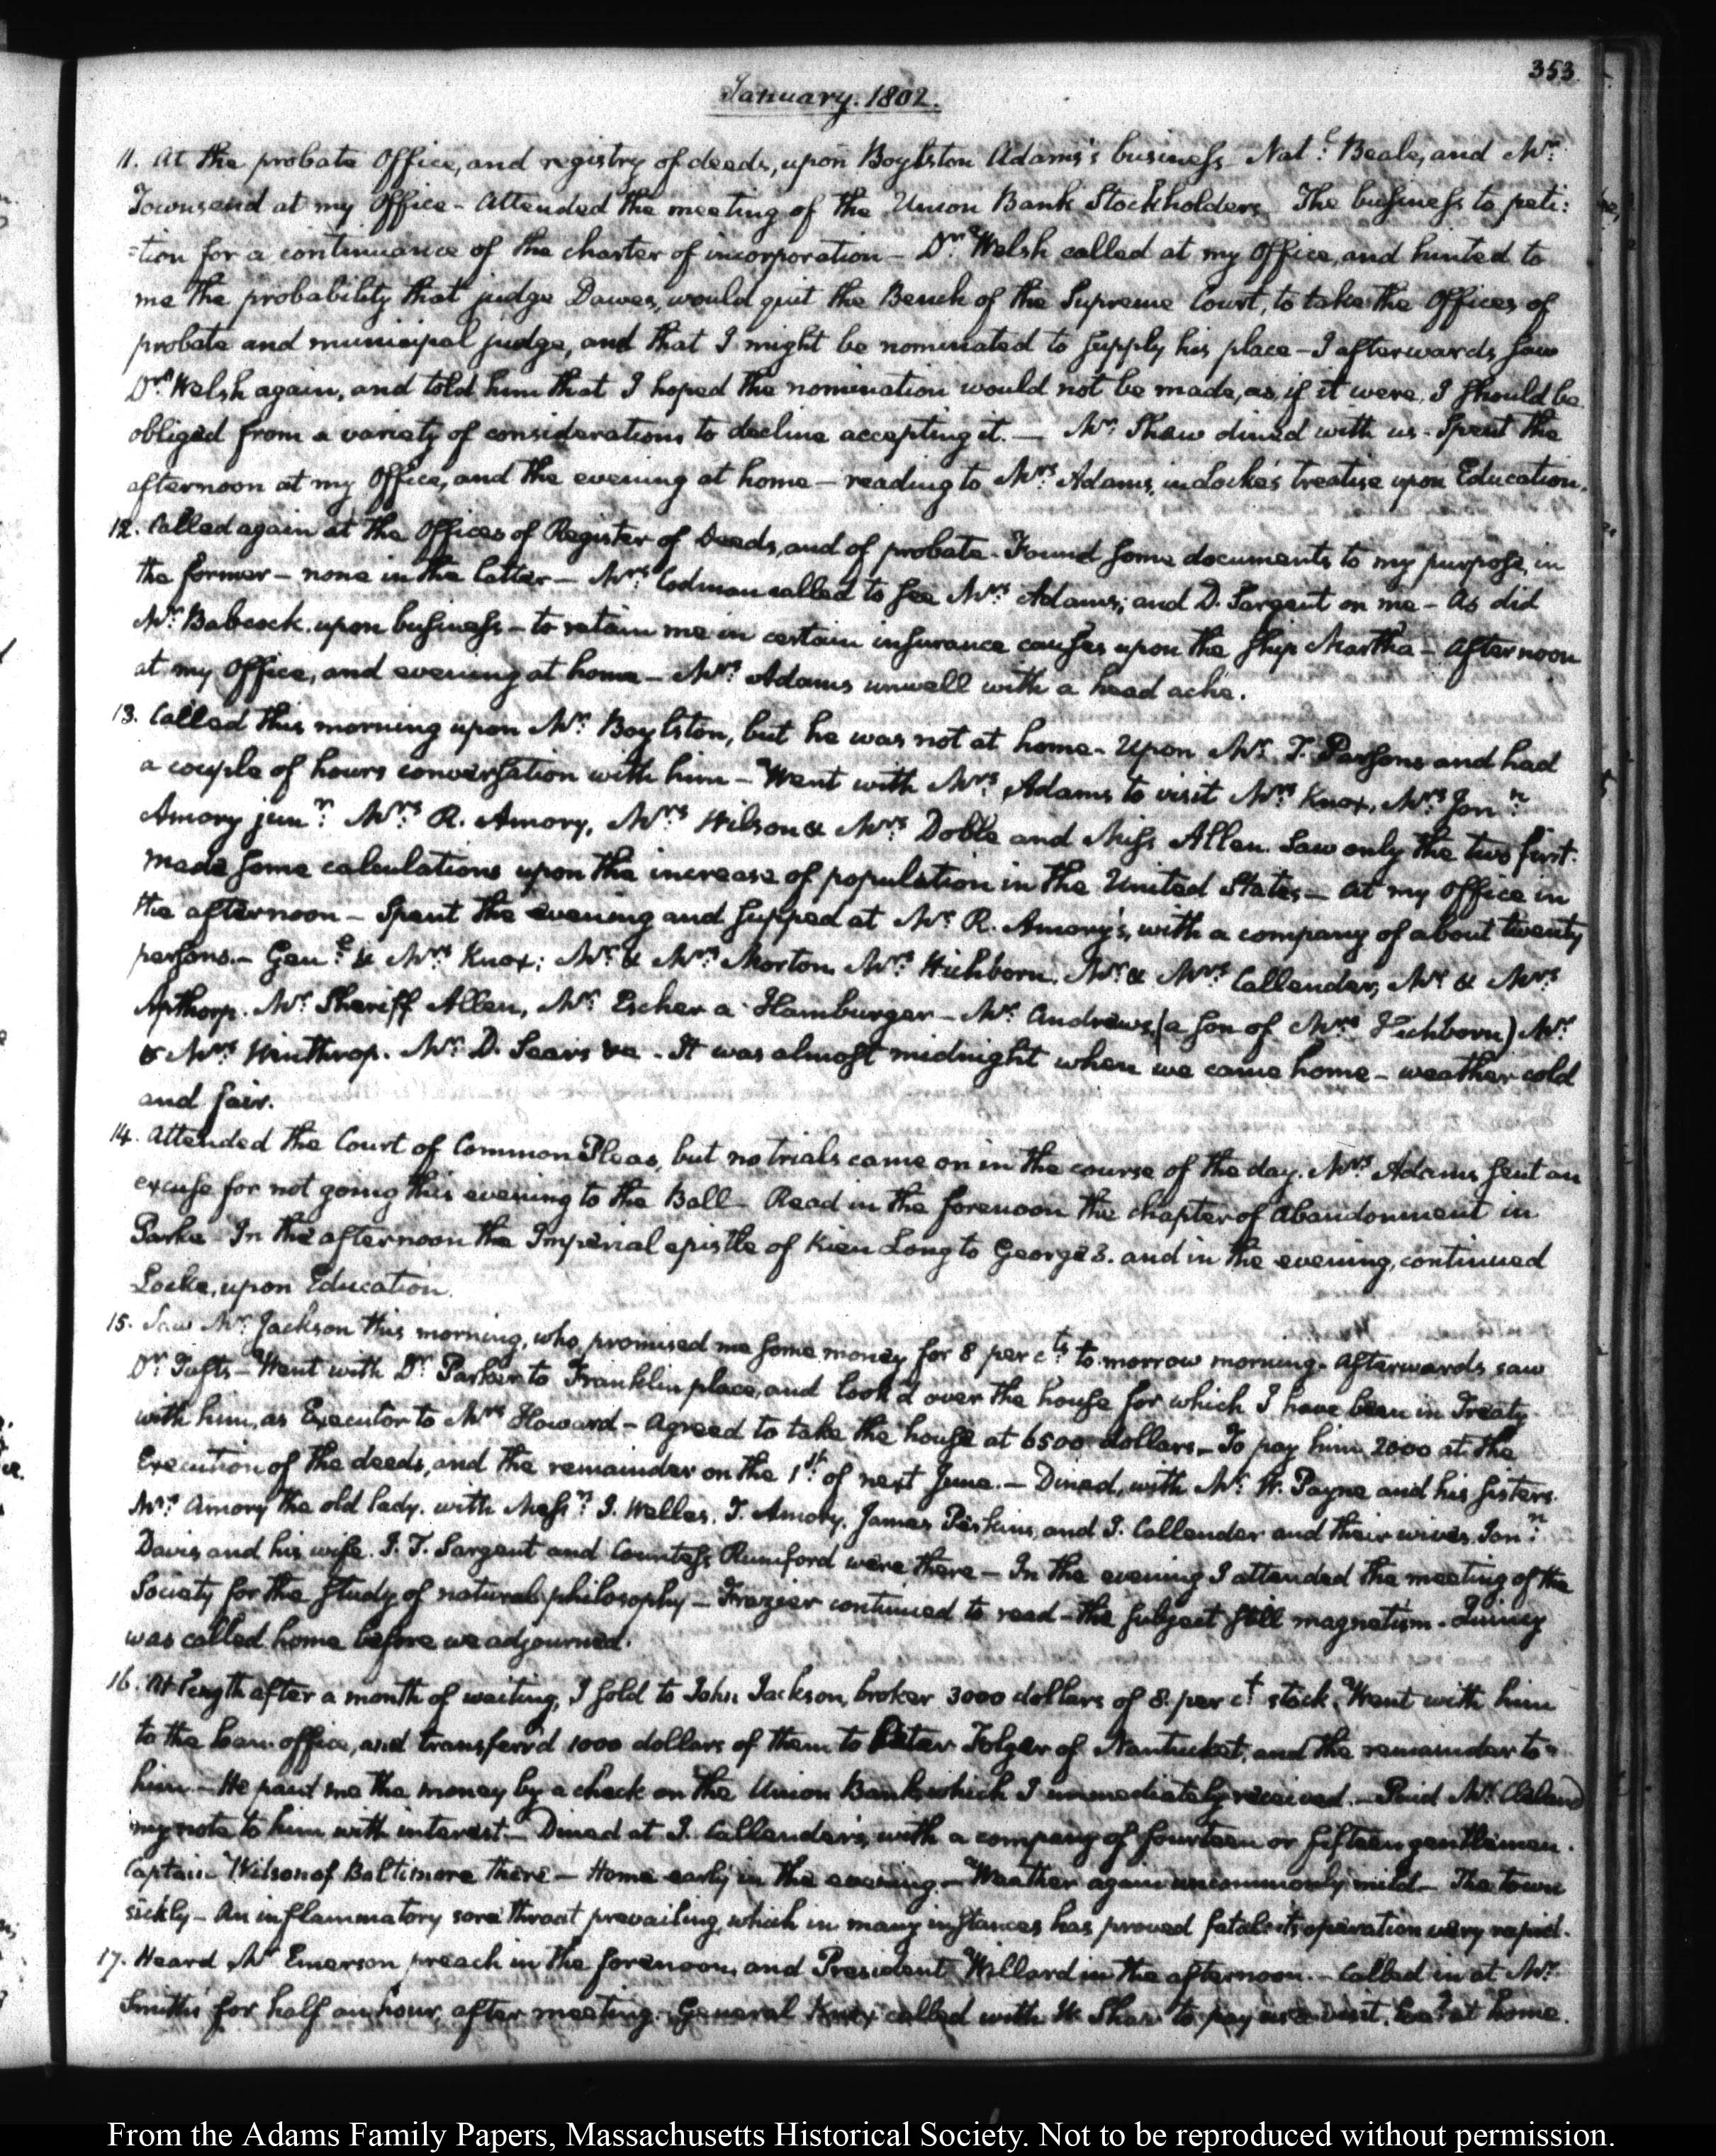 353
January. 1802.
11. At the probate Office, and registry of deeds, upon Boylston Adams's business - Nat:l Beale, and Mr:
Townsend at my Office - Attended the meeting of the Union Bank Stockholders. The business to peti:
=tion for a continuance of the charter of incorporation - Dr: Welsh called at my Office, and hinted to
me the probability that judge Dawes, would quit the Bench of the Supreme Court, to take the Offices of
probate and municipal judge, and that I might be nominated to supply his place - I afterwards saw
Dr: Welsh again, and told him that I hoped the nomination would not be made, as, if it were, I should be
obliged from a variety of considerations to decline accepting it. — Mr: Shaw dined with us - Spent the
afternoon at my Office, and the evening at home - reading to Mrs: Adams, in Locke's treatise upon Education.
12. Called again at the Offices of Register of Deeds, and of probate. Found some documents to my purpose, in
the former - none in the latter - Mrs: Codman called to see Mrs: Adams; and D. Sargent on me - As did
Mr: Babcock upon business - to retain me in certain insurance causes upon the ship Martha - Afternoon
at my Office, and evening at home - Mrs: Adams unwell with a head ache.
13. Called this morning upon Mr: Boylston, but he was not at home - Upon Mr: T. Parsons and had
a couple of hours conversation with him - Went with Mrs: Adams to visit Mrs: Knox, Mrs: Jon:n
Amory jun:r Mrs: R. Amory, Mrs: Wilson & Mrs Doble and Miss Allen. Saw only the two first.
Made some calculations upon the increase of population in the United States - At my Office in
the afternoon - Spent the evening and supped at Mr: R. Amory's, with a company of about twenty
persons. - Gen:l & Mrs Knox; Mr: & Mrs: Morton, Mrs: Hichborn, Mr: & Mrs: Callender, Mr: & Mrs:
Apthorp. Mr: Sheriff Allen, Mr: Escher a Hamburger - Mr: Andrews (a son of Mrs: Hichborn) Mr:
& Mrs: Winthrop. Mr: D. Sears &c - It was almost midnight when we came home - weather cold
and fair.
14. Attended the Court of Common Pleas, but no trials came on in the course of the day. Mrs: Adams sent an
excuse for not going this evening to the Ball - Read in the forenoon the chapter of Abandonment in
Parke - In the afternoon the Imperial epistle of Kien Long to George 3. and in the evening, continued
Locke, upon Education.
15. Saw Mr: Jackson this morning, who promised me some money for 8 per cts: to morrow morning. Afterwards saw
Dr: Tufts - Went with Dr: Parker to Franklin place, and look'd over the house for which I have been in Treaty
with him, as Executor to Mrs: Howard - Agreed to take the house at 6500 dollars - To pay him 2000 at the
Execution of the deeds, and the remainder on the 1st: of next June. - Dined, with Mr: W. Payne and his sisters.
Mrs: Amory the old lady. with Mess:rs J. Welles, T. Amory, James Perkins, and J. Callender and their wives, Jon:n
Davis and his wife. J. T. Sargent and Countess Rumford were there - In the evening I attended the meeting of the
Society for the study of natural philosophy - Frazier continued to read - the subject still magnetism - Quincy
was called home before we adjourned.
16. At length after a month of waiting, I sold to John Jackson, broker 3000 dollars of 8. per ct: stock. Went with him
to the loan office, and transferr'd 1000 dollars of them to Peter Folger of Nantucket, and the remainder to
him - He paid me the money by a check on the Union Bank, which I immediately received. - Paid Mr: Cleland
my note to him with interest - Dined at J. Callender's, with a company of fourteen or fifteen gentlemen.
Captain Wilson of Baltimore there - Home early in the evening - Weather again uncommonly mild - The town
sickly - An inflammatory sore throat prevailing, which in many instances has proved fatal - its operation very rapid.
17. Heard Mr: Emerson preach in the forenoon, and President Willard in the afternoon. - Called in at Mr:
Smith's for half an hour, after meeting. General Knox called with W. Shaw to pay us a visit. Eve:g at home.
From the Adams Family Papers, Massachusetts Historical Society. Not to be reproduced without permission.